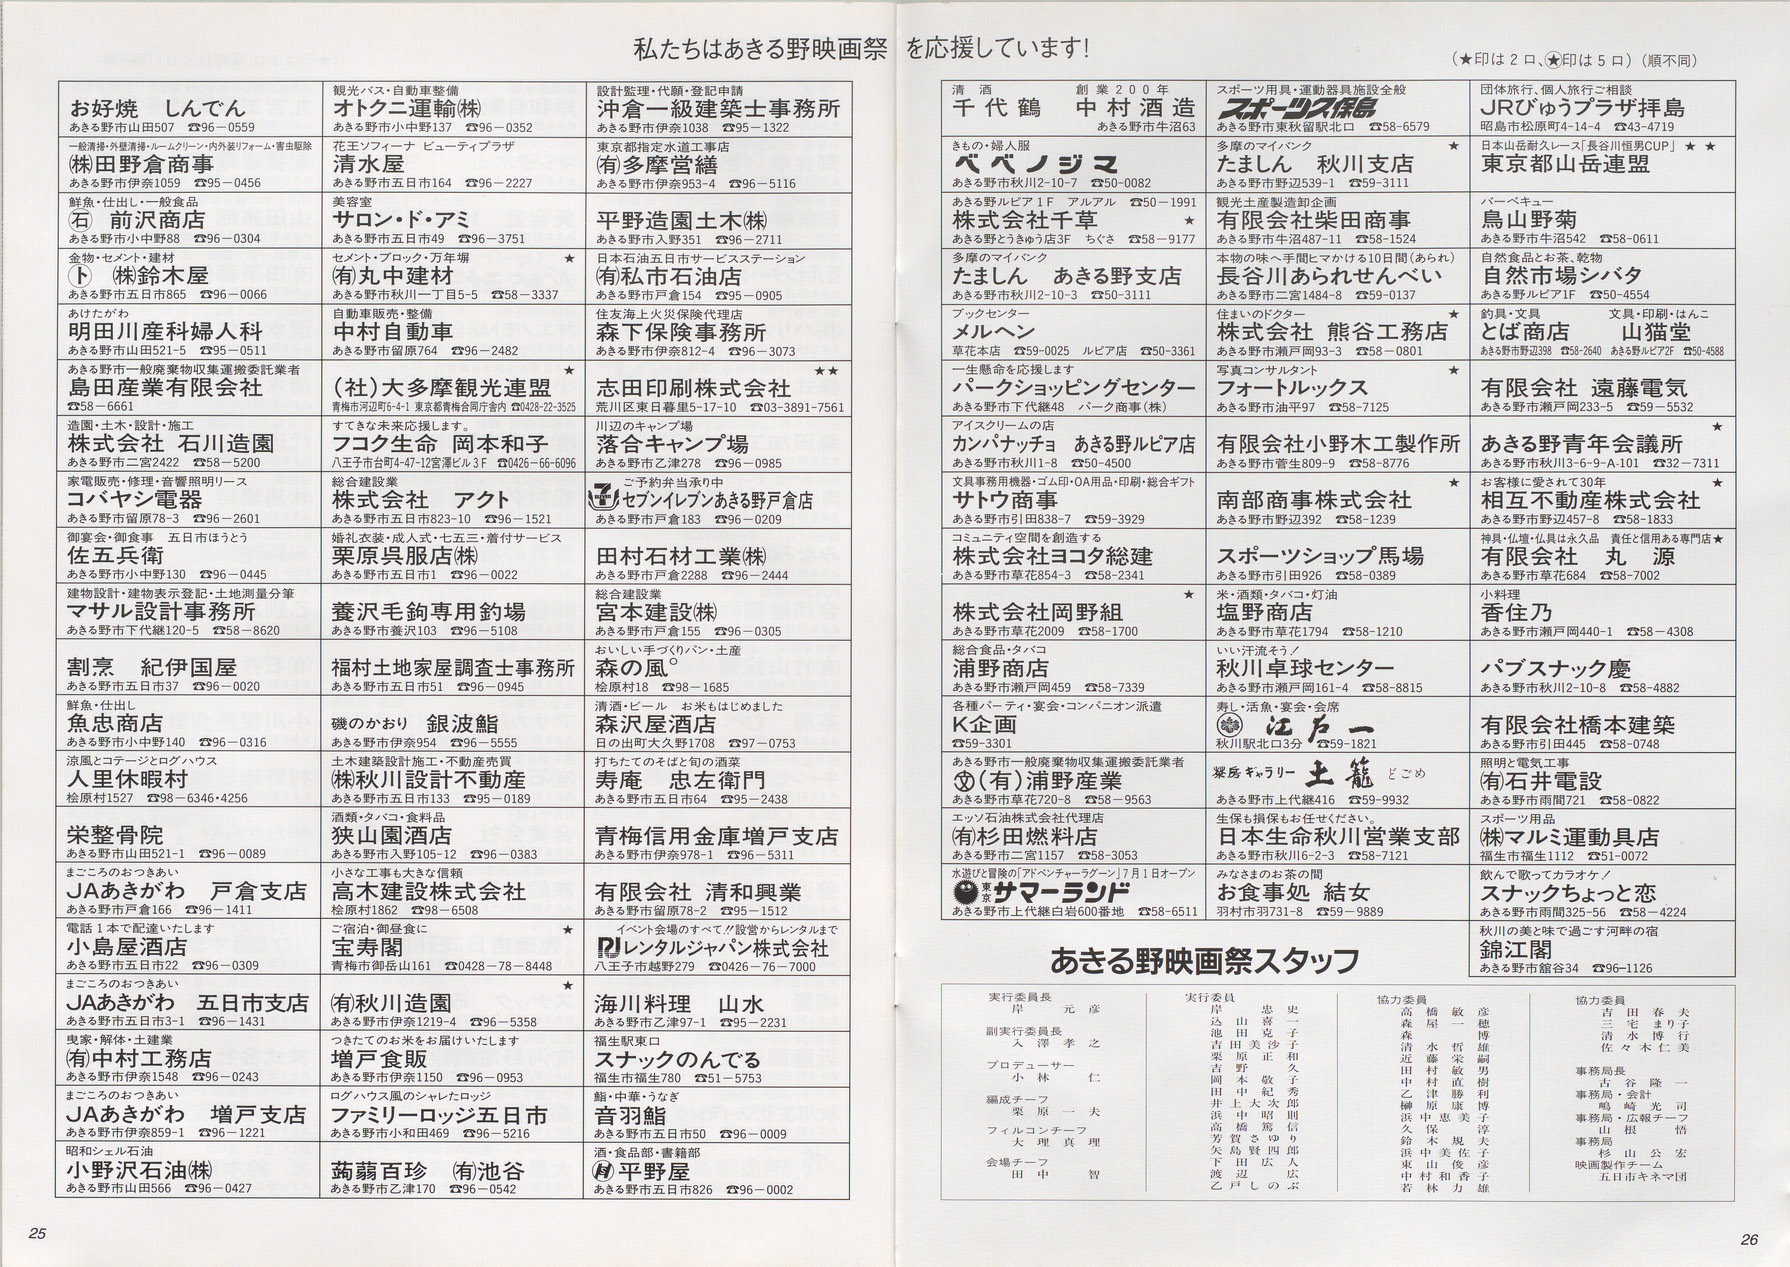 私たちはあきる野映画祭を応援しています!
(★印は2口、★印は5口)(順不同)
お好焼 しんでん
あきる野市山田507 ☎96-0559
観光バス・自動車整備
オトクニ運輸㈱
あきる野市小中野137 ☎96-0352
設計監理・代願・登記申請
沖倉一級建築士事務所
あきる野市伊奈1038 ☎95-1322
一般清掃・外壁清掃・ルームクリーン・内外装リフォーム・害虫駆除
㈱田野倉商事
あきる野市伊奈1059 ☎95-0456
花王ソフィーナ ビューティプラザ
清水屋
あきる野市五日市164 ☎96-2227
東京都指定水道工事店
㈲多摩営繕
あきる野市伊奈953-4 ☎96-5116
鮮魚・仕出し・一般食品
㊂ 前沢商店
あきる野市小中野88 ☎96-0304
美容室
サロン・ド・アミ
あきる野市五日市49 ☎96-3751
平野造園土木㈱
あきる野市入野351 ☎96-2711
金物・セメント・建材
㋣ ㈱鈴木屋
あきる野市五日市865 ☎96-0066
セメント・ブロック・万年塀 ★
㈲丸中建材
あきる野市秋川一丁目5-5 ☎58-3337
日本石油五日市サービスステーション
㈲私市石油店
あきる野市戸倉154 ☎95-0905
あけたがわ
明田川産科婦人科
あきる野市山田521-5 ☎95-0511
自動車販売・整備
中村自動車
あきる野市留原764 ☎96-2482
住友海上火災保険代理店
森下保険事務所
あきる野市伊奈812-4 ☎96-3073
あきる野市一般廃棄物収集運搬委託業者
島田産業有限会社
☎58-6661
★
(社)大多摩観光連盟
青梅市河辺町6-4-1 東京都青梅合同庁舎内 ☎0428-22-3525
★★
志田印刷株式会社
荒川区東日暮里5-17-10 ☎03-3891-7561
造園・土木・設計・施工
株式会社 石川造園
あきる野市二宮2422 ☎58-5200
すてきな未来応援します。
フコク生命 岡本和子
八王子市台町4-47-12宮澤ビル3F ☎0426-66-6096
川辺のキャンプ場
落合キャンプ場
あきる野市乙津278 ☎96-0985
家電販売・修理・音響照明リース
コバヤシ電器
あきる野市留原78-3 ☎96-2601
総合建設業
株式会社 アクト
あきる野市五日市823-10 ☎96-1521
ご予約弁当承り中
セブンイレブンあきる野戸倉店
あきる野市戸倉183 ☎96-0209
御宴会・御食事 五日市ほうとう
佐五兵衛
あきる野市小中野130 ☎96-0445
婚礼衣装・成人式・七五三・着付サービス
栗原呉服店㈱
あきる野市五日市1 ☎96-0022
田村石材工業㈱
あきる野市戸倉2288 ☎96-2444
建物設計・建物表示登記・土地測量分筆
マサル設計事務所
あきる野市下代継120-5 ☎58-8620
養沢毛鉤専用釣場
あきる野市養沢103 ☎96-5108
総合建設業
宮本建設㈱
あきる野市戸倉155 ☎96-0305
割烹 紀伊国屋
あきる野市五日市37 ☎96-0020
福村土地家屋調査士事務所
あきる野市五日市51 ☎96-0945
おいしい手づくりパン・土産
森の風°
桧原村18 ☎98-1685
鮮魚・仕出し
魚忠商店
あきる野市小中野140 ☎96-0316
磯のかおり 銀波鮨
あきる野市伊奈954 ☎96-5555
清酒・ビール お米もはじめました
森沢屋酒店
日の出町大久野1708 ☎97-0753
涼風とコテージとログハウス
人里休暇村
桧原村1527 ☎98-6346・4256
土木建築設計施工・不動産売買
㈱秋川設計不動産
あきる野市五日市133 ☎95-0189
打ちたてのそばと旬の酒菜
寿庵 忠左衛門
あきる野市五日市64 ☎95-2438
栄整骨院
あきる野市山田521-1 ☎96-0089
酒類・タバコ・食料品
狭山園酒店
あきる野市入野105-12 ☎96-0383
青梅信用金庫増戸支店
あきる野市伊奈978-1 ☎96-5311
まごころのおつきあい
JAあきがわ 戸倉支店
あきる野市戸倉166 ☎96-1411
小さな工事も大きな信頼
高木建設株式会社
桧原村1862 ☎98-6508
有限会社 清和興業
あきる野市留原78-2 ☎95-1512
電話1本で配達いたします
小島屋酒店
あきる野市五日市22 ☎96-0309
ご宿泊・御昼食に ★
宝寿閣
青梅市御岳山161 ☎0428-78-8448
イベント会場のすべて!!設営からレンタルまで
レンタルジャパン株式会社
八王子市越野279 ☎0426-76-7000
まごころのおつきあい
JAあきがわ 五日市支店
あきる野市五日市3-1 ☎96-1431
★
㈲秋川造園
あきる野市伊奈1219-4 ☎96-5358
海川料理 山水
あきる野市乙津97-1 ☎95-2231
曳家・解体・土建業
㈲中村工務店
あきる野市伊奈1548 ☎96-0243
つきたてのお米をお届けいたします
増戸食販
あきる野市伊奈1150 ☎96-0953
福生駅東口
スナックのんでる
福生市福生780 ☎51-5753
まごころのおつきあい
JAあきがわ 増戸支店
あきる野市伊奈859-1 ☎96-1221
ログハウス風のシャレたロッジ
ファミリーロッジ五日市
あきる野市小和田469 ☎96-5216
鮨・中華・うなぎ
音羽鮨
あきる野市五日市50 ☎96-0009
昭和シェル石油
小野沢石油㈱
あきる野市山田566 ☎96-0427
蒟蒻百珍 ㈲池谷
あきる野市乙津170 ☎96-0542
酒・食品部・書籍部
平野屋
あきる野市五日市826 ☎96-0002
25
清酒 創業200年
千代鶴 中村酒造
あきる野市牛沼63
スポーツ用具・運動器具施設全般
スポーツス保島
あきる野市東秋留駅北口 ☎58-6579
団体旅行、個人旅行ご相談
JRびゅうプラザ拝島
昭島市松原町4-14-4 ☎43-4719
きもの・婦人服
べべノジマ
あきる野市秋川2-10-7 ☎50-0082
多摩のマイバンク ★
たましん 秋川支店
あきる野市野辺539-1 ☎59-3111
日本山岳耐久レース「長谷川恒男CUP」 ★ ★
東京都山岳連盟
あきる野ルピア1F アルアル ☎50-1991
株式会社千草 ★
あきる野とうきゅう店3F ちぐさ ☎58-9177
観光土産製造卸企画
有限会社柴田商事
あきる野市牛沼487-11 ☎58-1524
バーベキュー
鳥山野菊
あきる野市牛沼542 ☎58-0611
多摩のマイバンク
たましん あきる野支店
あきる野市秋川2-10-3 ☎50-3111
本物の味へ手間ヒマかける10日間(あられ)
長谷川あられせんべい
あきる野市二宮1484-8 ☎59-0137
自然食品とお茶、乾物
自然市場シバタ
あきる野ルピア1F ☎50-4554
ブックセンター
メルヘン
草花本店 ☎59-0025 ルピア店 ☎50-3361
住まいのドクター ★
株式会社 熊谷工務店
あきる野市瀬戸岡93-3 ☎58-0801
釣具・文具 文具・印刷・はんこ
とば商店 山猫堂
あきる野市野辺398 ☎58-2640 あきる野ルピア2F ☎50-4588
一生懸命を応援します
パークショッピングセンター
あきる野市下代継48 パーク商事(株)
写真コンサルタント ★
フォートルックス
あきる野市油平97 ☎58-7125
有限会社 遠藤電気
あきる野市瀬戸岡233-5 ☎59-5532
アイスクリームの店
カンパナッチョ あきる野ルピア店
あきる野市秋川1-8 ☎50-4500
有限会社小野木工製作所
あきる野市菅生809-9 ☎58-8776
★
あきる野青年会議所
あきる野市秋川3-6-9-A-101 ☎32-7311
文具事務用機器・ゴム印・OA用品・印刷・総合ギフト
サトウ商事
あきる野市引田838-7 ☎59-3929
★
南部商事株式会社
あきる野市野辺392 ☎58-1239
お客様に愛されて30年 ★
相互不動産株式会社
あきる野市野辺457-8 ☎58-1833
コミュニティ空間を創造する
株式会社ヨコタ総建
あきる野市草花854-3 ☎58-2341
スポーツショップ馬場
あきる野市引田926 ☎58-0389
神具・仏壇・仏具は永久品 責任と信用ある専門店★
有限会社 丸源
あきる野市草花684 ☎58-7002
★
株式会社岡野組
あきる野市草花2009 ☎58-1700
米・酒類・タバコ・灯油
塩野商店
あきる野市草花1794 ☎58-1210
小料理
香住乃
あきる野市瀬戸岡440-1 ☎58-4308
総合食品・タバコ
浦野商店
あきる野市瀬戸岡459 ☎58-7339
いい汗流そう!
秋川卓球センター
あきる野市瀬戸岡161-4 ☎58-8815
パブスナック慶
あきる野市秋川2-10-8 ☎58-4882
各種パーティ・宴会・コンパニオン派遣
K企画
☎59-3301
寿し・活魚・宴会・会席
江戸一
秋川駅北口3分 ☎59-1821
有限会社橋本建築
あきる野市引田445 ☎58-0748
あきる野市一般廃棄物収集運搬委託業者
(有)浦野産業
あきる野市草花720-8 ☎58-9563
ギャラリー 土籠 どごめ
あきる野市上代継416 ☎59-9932
照明と電気工事
㈲石井電設
あきる野市雨間721 ☎58-0822
エッソ石油株式会社代理店
㈲杉田燃料店
あきる野市二宮1157 ☎58-3053
生保も損保もお任せください。
日本生命秋川営業支部
あきる野市秋川6-2-3 ☎58-7121
スポーツ用品
㈱マルミ運動具店
福生市福生1112 ☎51-0072
水遊びと冒険の「アドベンチャーラグーン」7月1日オープン
東京サマーランド
あきる野市上代継白岩600番地 ☎58-6511
みなさまのお茶の間
お食事処 結女
羽村市羽731-8 ☎59-9889
飲んで歌ってカラオケ!
スナックちょっと恋
あきる野市雨間325-56 ☎58-4224
秋川の美と味で過ごす河畔の宿
錦江閣
あきる野市舘谷34 ☎96-1126
あきる野映画祭スタッフ
実行委員長
岸元彦
副実行委員長
入澤孝之
プロデューサー
小林仁
編成チーフ
栗原一夫
フィルコンチーフ
大理真理
会場チーフ
田中智
実行委員
岸忠史
込山喜一
池田克子
吉田美沙子
栗原正和
吉野久
岡本敬子
田中紀秀
井上大次郎
浜中昭則
高橋篤信
芳賀さゆり
矢島賢四郎
下田広人
渡辺広
乙戸しのぶ
協力委員
高橋敏彦
森屋一穂
森博
清水哲雄
近藤栄嗣
田村敏男
中村直樹
乙津勝利
榊原康博
浜中恵美子
久保淳
鈴木規夫
浜中美佐子
東山俊彦
中村和香子
若林力雄
協力委員
吉田春夫
三宅まり子
清水博行
佐々木仁美
事務局長
古谷隆一
事務局・会計
嶋崎光司
事務局・広報チーフ
山根悟
事務局
杉山公宏
映画製作チーム
五日市キネマ団
26